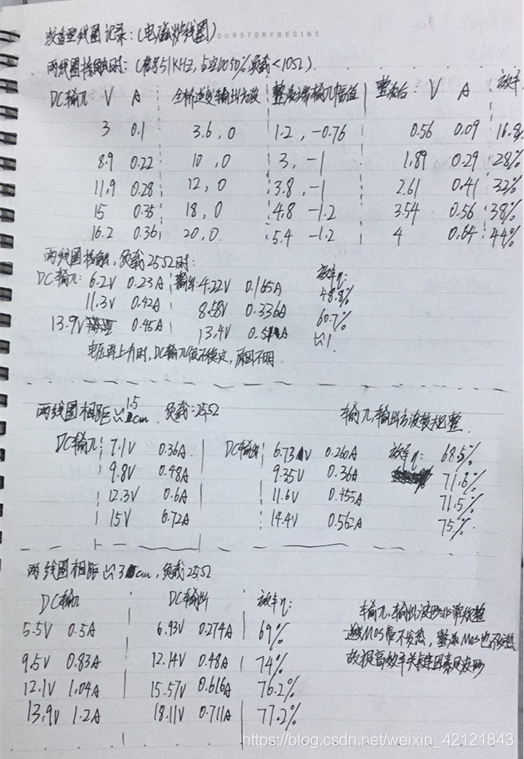 OURSTORYBEGINS
线圈记录:(电磁炉线圈)
两线圈接触时:(频率51KHZ,占空比50%负载<10Ω)
DC输入: V A 全桥逆变输出方波 整流端输入幅值 整流后: V A 效率
3 0.1 3.6,0 1.2,-0.76 0.56 0.09 16.8%
8.9 0.22 10,0 3,-1 1.89 0.29 28%
11.9 0.28 12,0 3.8,-1 2.61 0.41 32%
15 0.35 18,0 4.8 -1.2 3.54 0.56 38%
16.2 0.36 20,0 5.4 -1.2 4 0.64 44%
两线圈接触,负载25Ω时:
DC输入: 6.2V 0.23A 输出: 4.22V 0.165A 效率η: 48.8%
11.3V 0.42A 8.58V 0.336A 60.7%
13.9V 0.45A 13.4V 0.51A ≈1
电压再上升时,DC输入很不稳定,原因不明
两线圈相距≈1.5cm 负载:25Ω 输入,输出方波较规整
DC输入: 7.1V 0.36A DC输出: 6.73V 0.260A 效率η: 68.5%
9.8V 0.48A 9.35V 0.36A 71.6%
12.3V 0.6A 11.6V 0.455A 71.5%
15V 0.72A 14.4V 0.562A 75%
两线圈相距≈3cm,负载25Ω
DC输入 DC输出 效率η:
5.5V 0.5A 6.93V 0.274A 69%
9.5V 0.83A 12.14V 0.48A 74%
12.1V 1.04A 15.57V 0.616A 76.2%
13.9V 1.2A 18.11V 0.711A 77.2%
输入,输出波形非常规整
逆变MOS管不发热,整流MOS也不发热
故提高效率关键因素是波形
https://blog.csdn.net/weixin_42121843